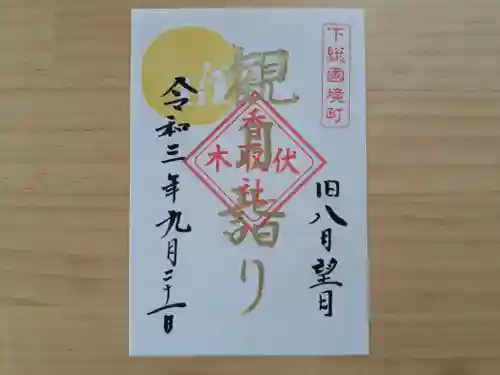 下総國境町
旧八月望月
観月詣り
伏木
香取社
令和三年九月二十一日